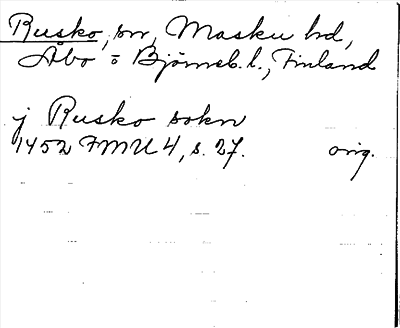 Rusko, sn, Masku hd,
Åbo o Björneb. l., Finland
j Rusko sokn
1452 FMU 4, s. 27. orig.